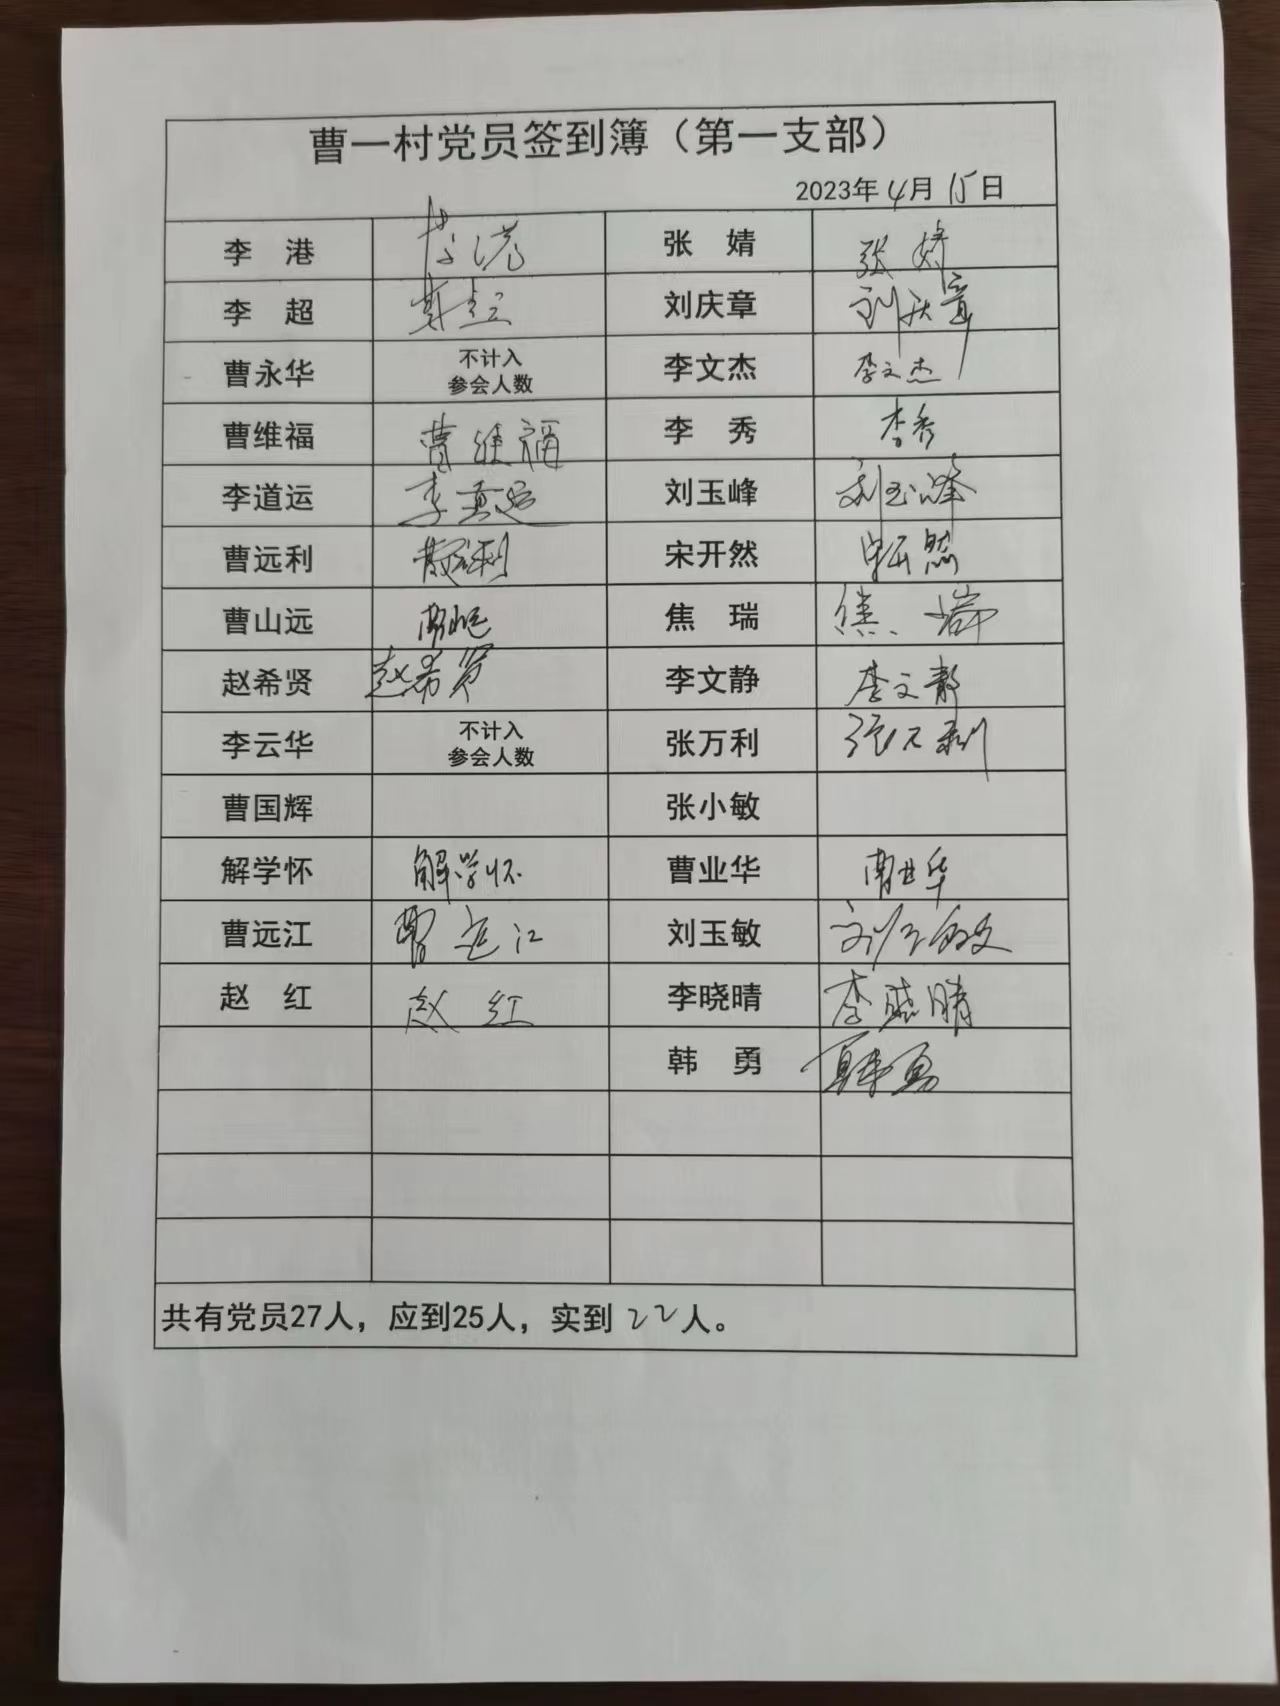 曹一村党员签到簿（第一支部）
2023年4月15日
李 港 李港 张 婧 张婧
李 超 李超 刘庆章 刘庆章
曹永华 不计入 参会人数 李文杰 李文杰
曹维福 曹维福 李 秀 李秀
李道运 李道运 刘玉峰 刘玉峰
曹远利 曹远利 宋开然 宋开然
曹山远 曹山远 焦 瑞 焦瑞
赵希贤 赵希贤 李文静 李文静
李云华 不计入 参会人数 张万利 张万利
曹国辉 张小敏
解学怀 解学怀 曹业华 曹业华
曹远江 曹远江 刘玉敏 刘玉敏
赵 红 赵红 李晓晴 李晓晴
韩 勇 韩勇
共有党员27人，应到25人，实到22人。